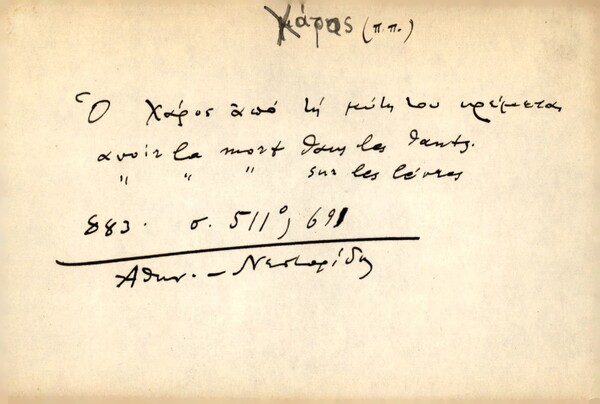 Χάρος (π.π.)
Ὁ Χάρος ἀπό τή μύτη του κρέμεται
avoir la mort dans les dents.
" " " sur les lèvres
883. σ. 511⁰, 691
Ἀθην. – Νεστορίδης